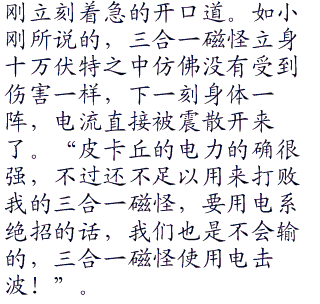 刚立刻着急的开口道。如小
刚所说的，三合一磁怪立身
十万伏特之中仿佛没有受到
伤害一样，下一刻身体一
阵，电流直接被震散开来
了。“皮卡丘的电力的确很
强，不过还不足以用来打败
我的三合一磁怪，要用电系
绝招的话，我们也是不会输
的，三合一磁怪使用电击
波！”。